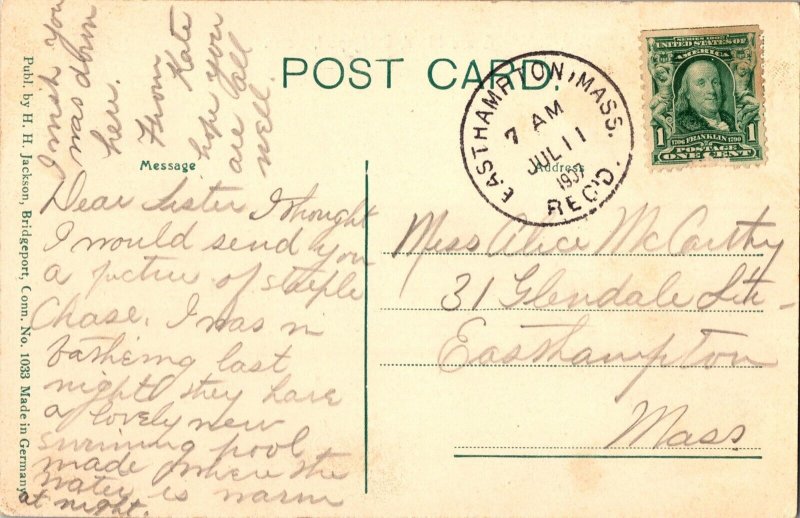 POST CARD.
Message
Address
Publ. by H. H. Jackson, Bridgeport, Conn. No. 1033 Made in Germany
EASTHAMPTON, MASS.
7 AM
JUL 11
1907
REC'D.
SERIES 1902
UNITED STATES OF
AMERICA
1 1
1706 FRANKLIN 1790
POSTAGE
ONE CENT
Dear Sister I thought
I would send you
a picture of steeple
Chase. I was in
batheing last
night they have
a lovely new
swiming pool
made where the
water is warm
at night.
I wish you
was down
here.
From
Kate
hope you
are all
well.
Miss Alice McCarthy
31 Glendale Str-
Easthampton
Mass